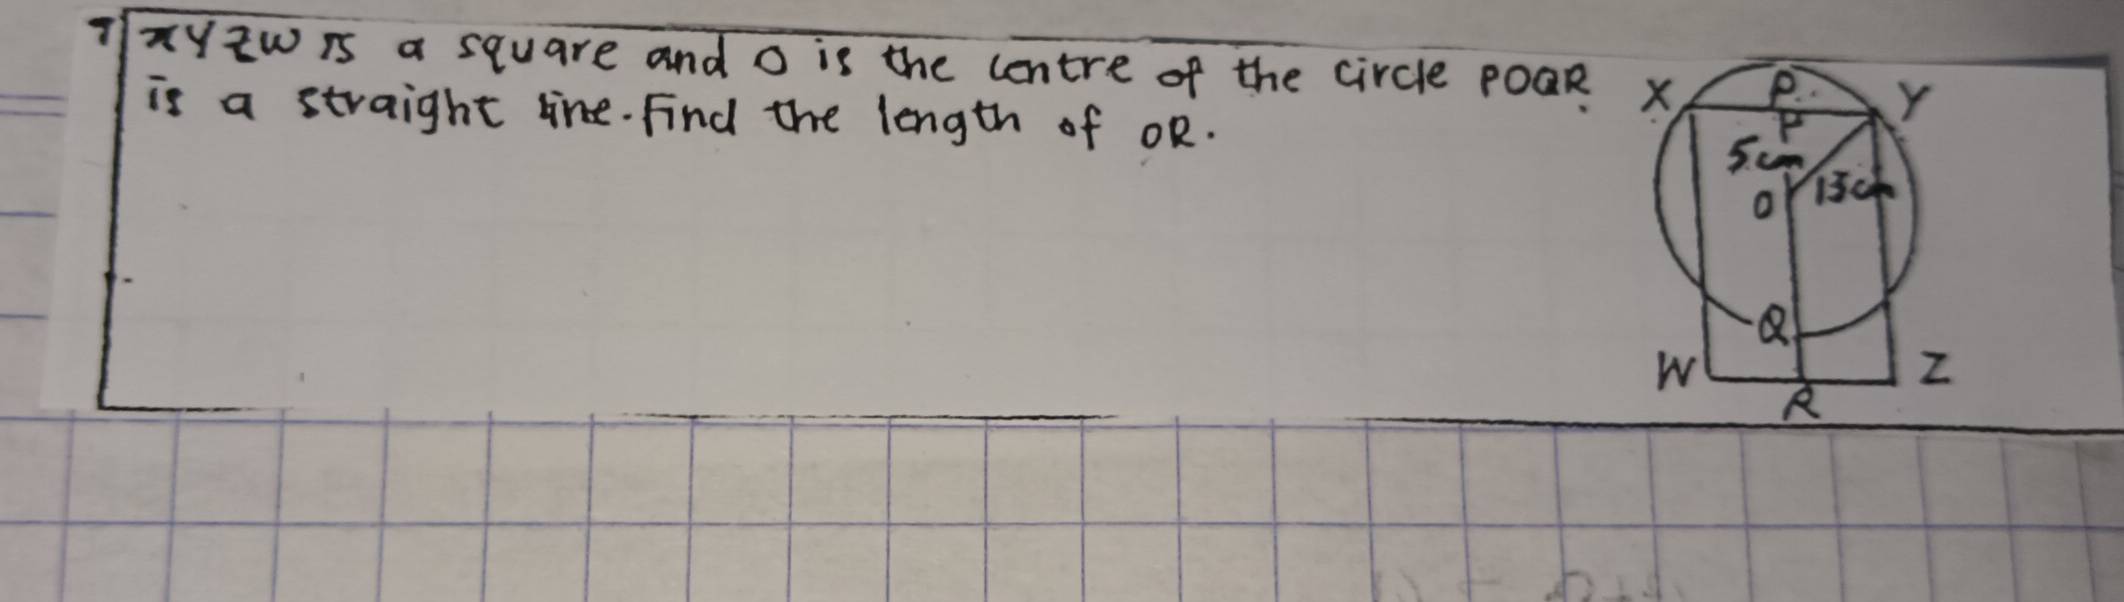 7 XYZW is a square and O is the centre of the circle POQR
is a straight line. Find the length of OR.
X
P
Y
P
5cm
13cm
O
Q
W
Z
R